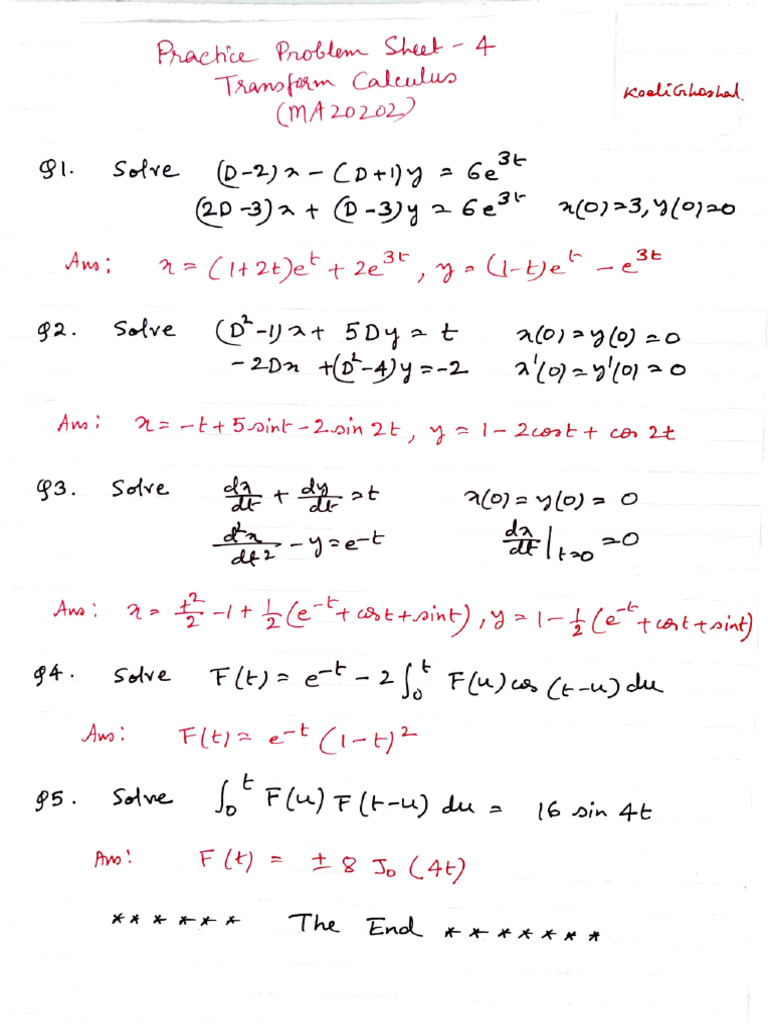 Practice Problem Sheet - 4
Transform Calculus
(MA20202)
Koeli Ghoshal.
Q1. Solve (D-2)x - (D+1)y = 6e^{3t}
(2D-3)x + (D-3)y = 6e^{3t} x(0)=3, y(0)=0
Ans: x = (1+2t)e^t + 2e^{3t}, y = (1-t)e^t - e^{3t}
Q2. Solve (D^2-1)x + 5Dy = t x(0) = y(0) = 0
-2Dx + (D^2-4)y = -2 x'(0) = y'(0) = 0
Ans: x = -t + 5 sint - 2 sin 2t, y = 1 - 2cost + cos 2t
Q3. Solve dx/dt + dy/dt = t x(0) = y(0) = 0
d^2x/dt^2 - y = e^{-t} dx/dt|_{t=0} = 0
Ans: x = t^2/2 - 1 + 1/2 (e^{-t} + cost + sint), y = 1 - 1/2 (e^{-t} + cost + sint)
Q4. Solve F(t) = e^{-t} - 2 ∫_0^t F(u) cos (t-u) du
Ans: F(t) = e^{-t} (1-t)^2
Q5. Solve ∫_0^t F(u) F(t-u) du = 16 sin 4t
Ans: F(t) = ± 8 J_0 (4t)
* * * * * * The End * * * * * * *